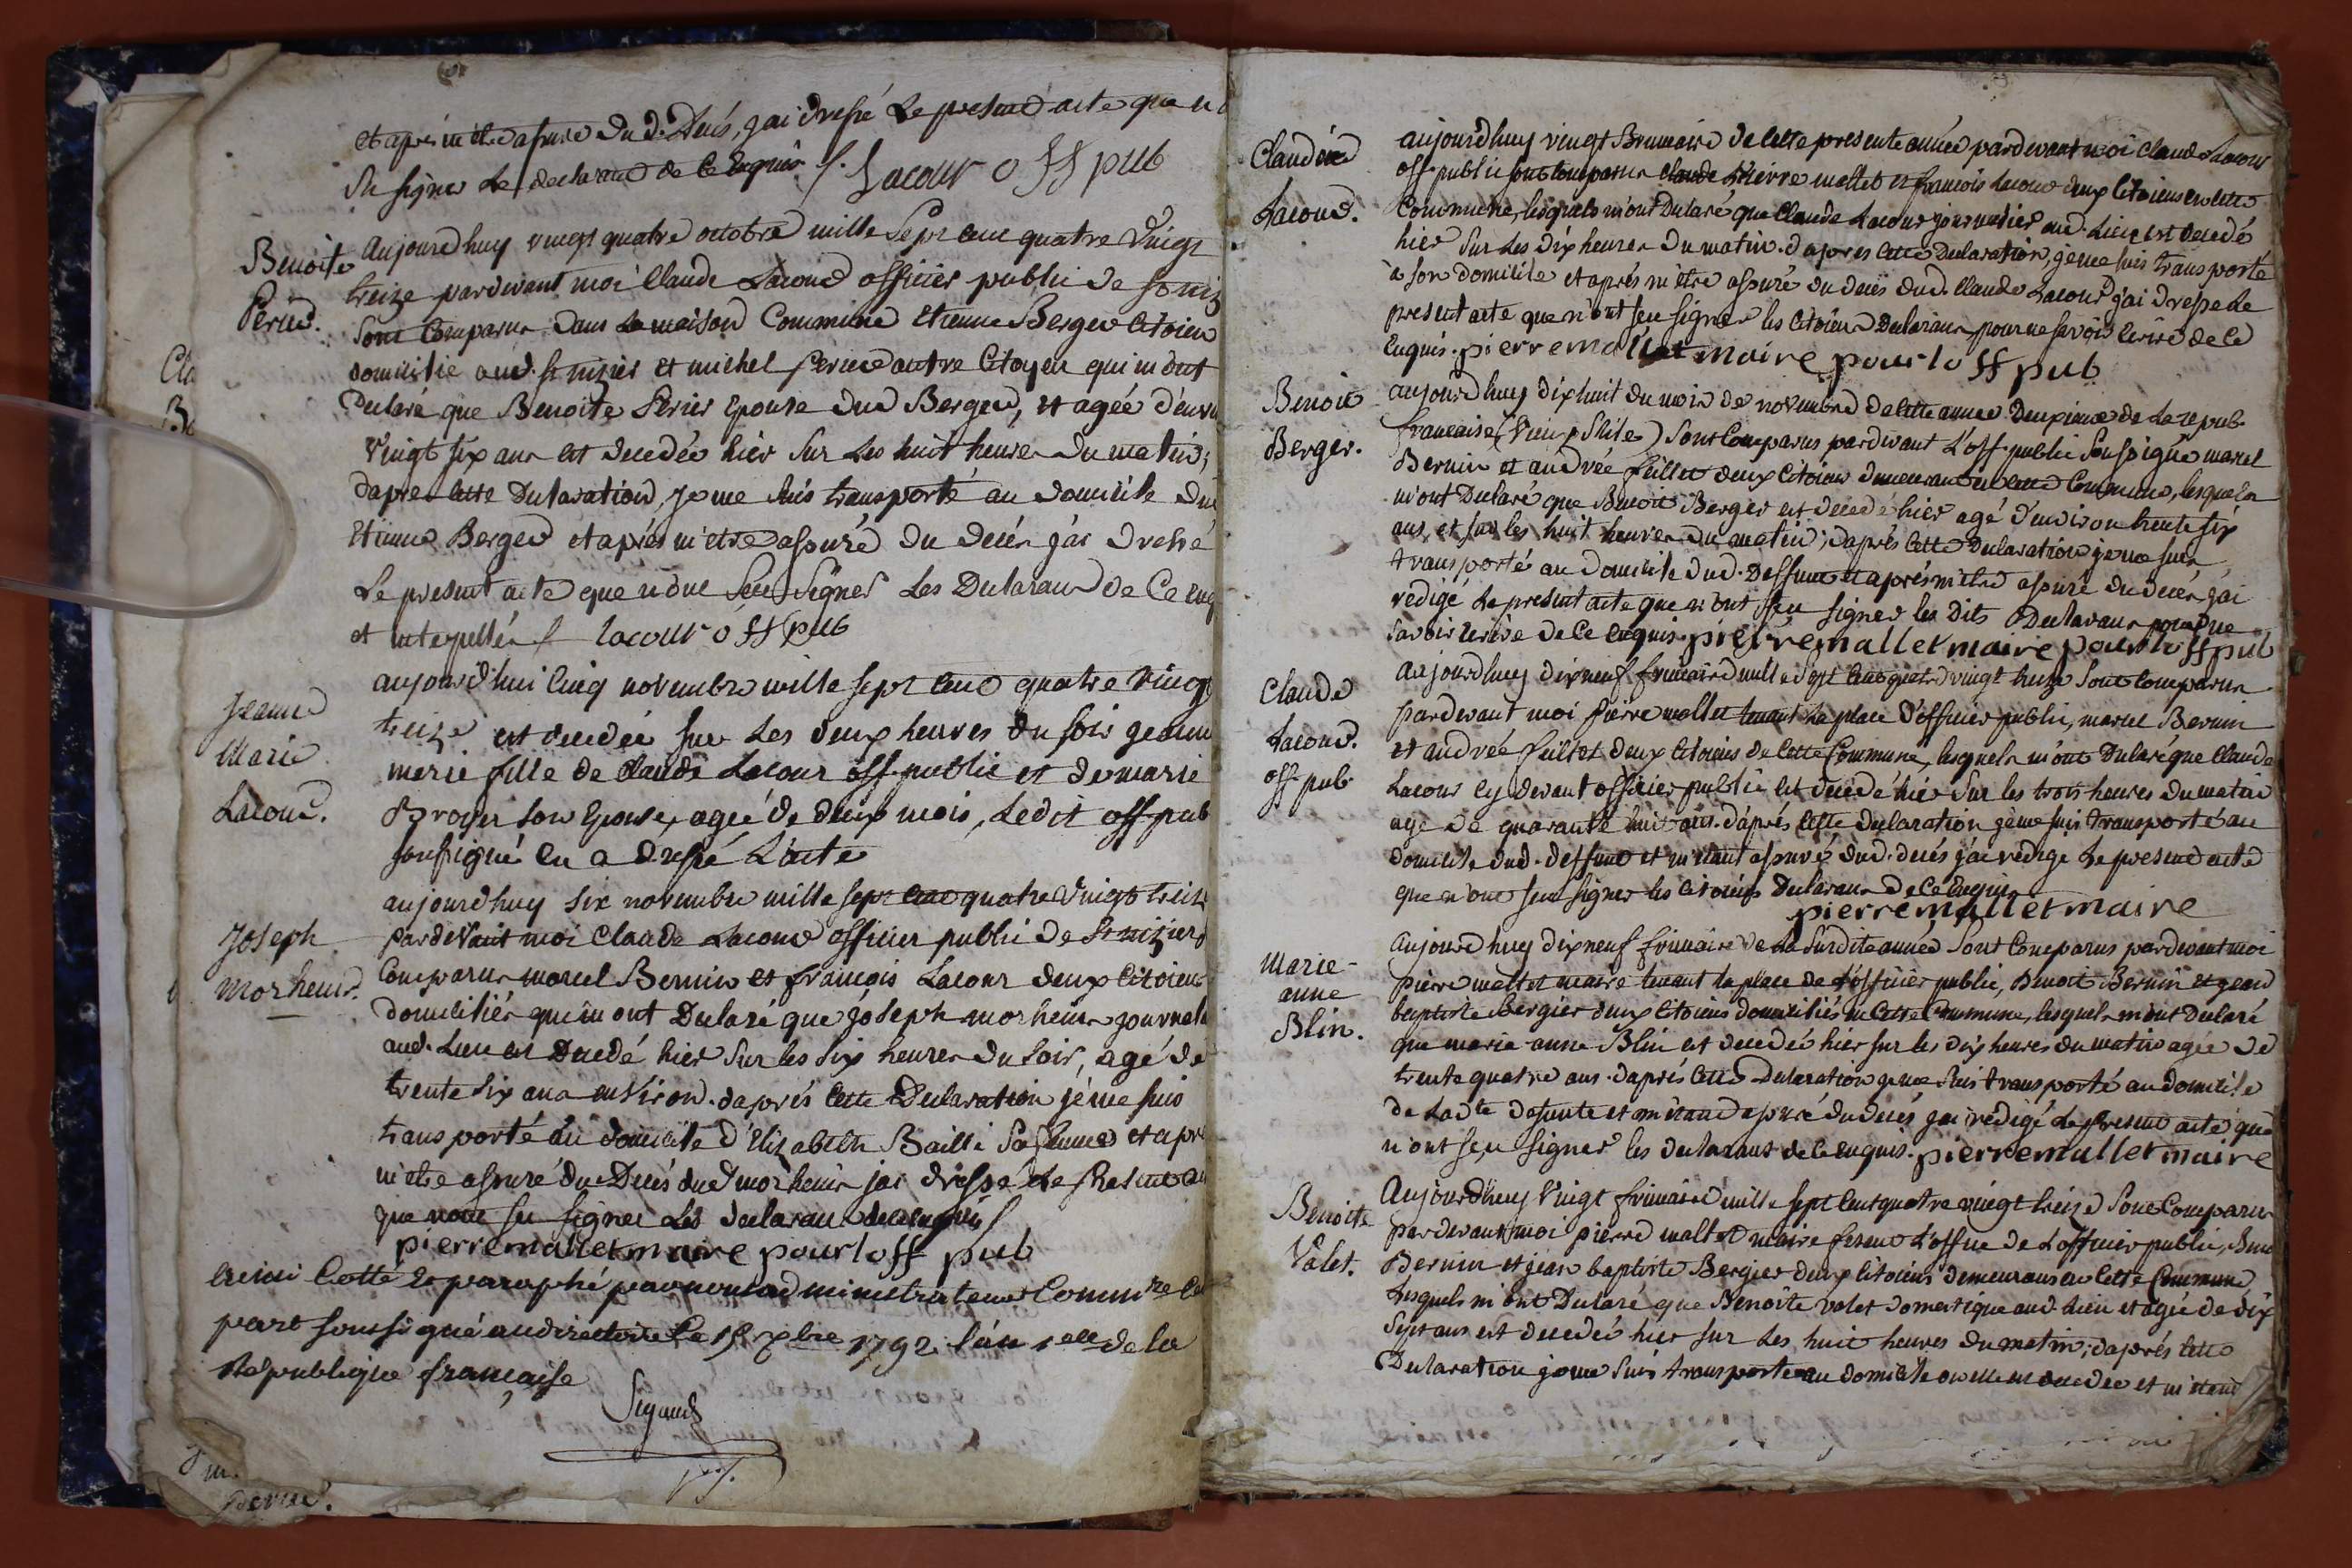 et après m'être assuré du d. decès, j'ai dressé Le present acte que n'
Su signer Le declarant de ce enquis / Lacour off pub
Benoite
Perier.
Aujourd'huy vingt quatre octobre mille Sept cent quatre vingt
treize pardevant moi Claude Lacour officier public de St niz
Sont Comparus dans La maison Commune Etienne Berger Citoien
domicilie aud. St nizier et michel perier autre Citoyen qui m'ont
Declaré que Benoite Périer Epouse dud Berger, et agée d'envi
Vingt six ans est decedée hier Sur Les huit heures du matin;
dapres cette Declaration, Je me suis transporté au domicile dud
Etienne Berger et après m'être assuré du decès j'ai dressé
Le present acte que n'ont Seu Signer Les Declarans de Ce enq
et interpellés / lacour off pub
Jeanne
Marie
Lacour.
aujourd'hui cinq novembre mille sept cent quatre vingt
treize est decedée sur Les deux heures du soir jeanne
marie fille de Claude Lacour off. public et de marie
Broyer son Epouse, agée de deux mois, Ledit off. pub
soussigné en a dressé L'acte
Joseph
morheins.
aujourdhuy six novembre mille sept cent quatre vingt treize
pardevant moi Claude Lacour officier public de St nizier
Comparus marcel Bernin et francois Lacour deux Citoiens
domiciliés qui m'ont Declaré que joseph morheins journal
aud. Lieu est Decedé hier Sur les Six heures du Soir, agé de
trente Six ans environ. daprès Cette Declaration je me suis
transporté au domicile d'Elizabeth Bailli Sa femme et apr
m'être assuré du Decès dud morheins j'ai dressé Le Present ac
que n'ont su signer Les declarans de ce enquis /
pierre mallet maire pour loff pub
Cotté & paraphé par nous administrateur Comm.re
part soussigné au directoire Le 15 xbre 1792 l'an 1er de la
Republique française
Claude
Lacour.
aujourdhuy vingt Brumaire de Cette presente année pardevant moi Claude Lacour
off public sont Comparus Claude Pierre mallet et francois Lacour deux Citoiens en cette
Commune, lesquels m'ont Declaré que Claude Lacour journalier aud. Lieu est decedé
hier Sur Les dix heures du matin. d'apres Cette Declaration, je me suis transporté
à son domicile et après m'être assuré du decès dud. Claude Lacour j'ai dressé Le
present acte que n'ont seu signer les Citoiens Declarans pour ne savoir Ecrire de ce
Enquis. pierre mallet maire pour loff pub
Benoit
Berger.
aujourd'huy dix huit du mois de novembre de Cette année Deuxieme de La repub.
francaise (Vieux Stile) Sont Comparus pardevant L'off. public Soussigné marcel
Bernin et andrée feillet deux Citoiens demeurant en Cette Commune, lesquels
m'ont Declaré que Benoit Berger est decedé hier agé d'environ trente six
ans, et sur les huit heures du matin; dapres Cette Declaration je me suis
transporté au domicile dud. Deffunt et après m'être assuré du decès j'ai
redigé Le present acte que n'ont Seu signer les Dits Declarans pour ne
savoir Ecrire de Ce enquis. pierre mallet maire pour loff pub
Claude
Lacour.
off. pub
Aujourdhuy dixneuf frimaire mille Sept Cent quatre vingt treize Sont Comparus
Pardevant moi Pierre mallet tenant La place d'officier public, marcel Bernin
et andrée feillet deux Citoiens de Cette Commune, lesquels m'ont Declaré que Claude
Lacour Cy devant officier public est Decedé hier Sur les trois heures du matin
agé de quarante huit ans. d'après Cette declaration je me suis transporté au
domicile dud. deffunt et m'etant assuré dud. decès j'ai redigé Le present acte
que n'ont seu signer les Citoiens Declarans de Ce Enquis
pierre mallet maire
Marie-
anne
Blin.
Aujourd'huy dixneuf frimaire de La Susdite année Sont Comparus pardevant moi
pierre mallet maire tenant la place de L'officier public, Benoit Bernin et jean
baptiste bergier deux Citoiens domiciliés en Cette Commune, lesquels m'ont Declaré
que marie anne Blin est decedée hier sur les dix heures du matin agée de
trente quatre ans. daprès Cette Declaration je me suis transporté au domicile
de Ladte defunte et m'étant assuré du decès j'ai redigé Le present acte que
n'ont seu signer les declarans de ce enquis. pierre mallet maire
Benoite
Valet.
Aujourdhuy Vingt frimaire mille sept Cent quatre vingt treize Sont Comparus
pardevant moi pierre mallet maire fesant L'office de L'officier public, Beno
Bernin et jean baptiste Bergier deux Citoiens demeurans en Cette Commune
Lesquels m'ont Declaré que Benoite valet domestique aud. Lieu et agée de dix
Sept ans est decedée hier sur Les huit heures du matin; d'après Cette
Declaration je me Suis transporté au domicile ou elle est decedée et m'etant